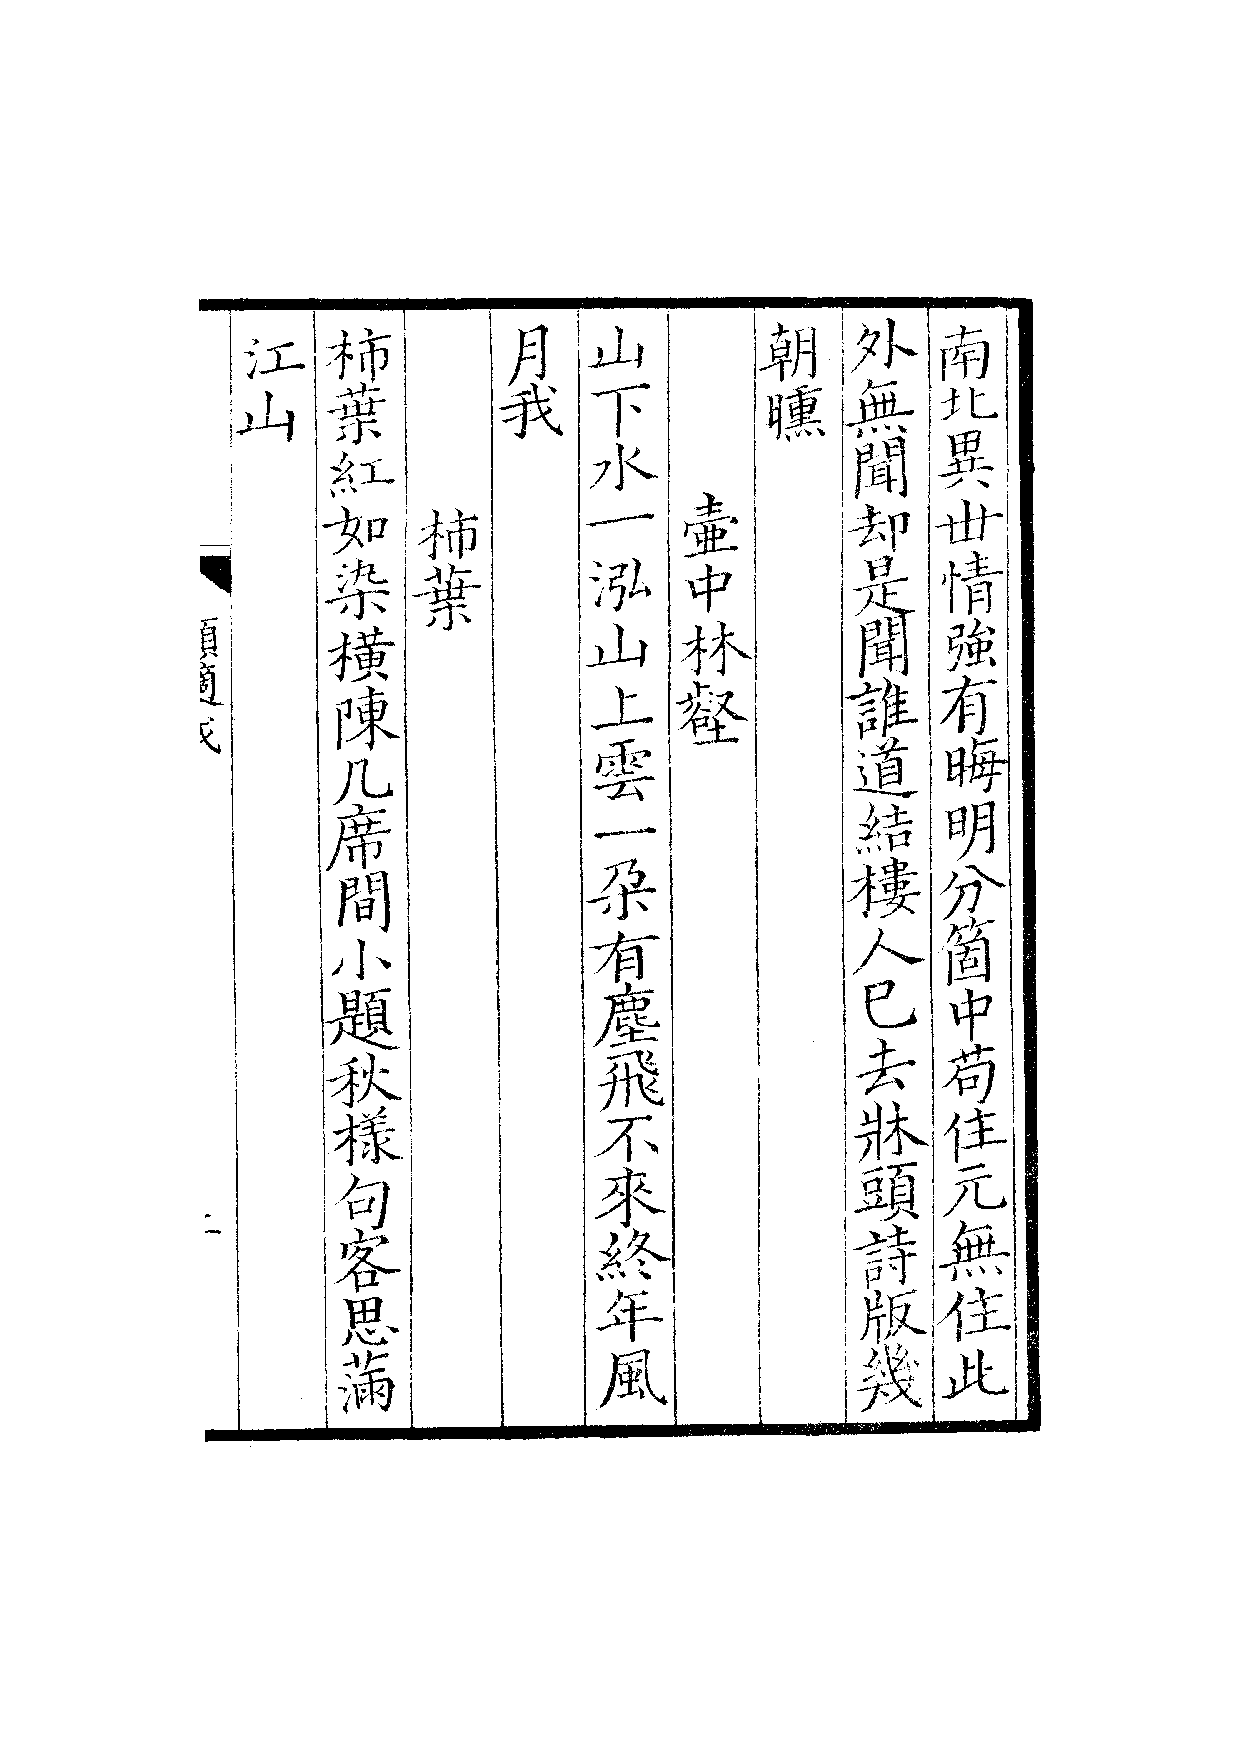 南北異世情強有晦明分箇中苟住元無住此
外無聞却是聞誰道結樓人已去牀頭詩版幾
朝曛
壺中林壑
山下水一泓山上雲一朶有塵飛不來終年風
月我
柿葉
柿葉紅如染橫陳几席間小題秋様句客思滿
江山